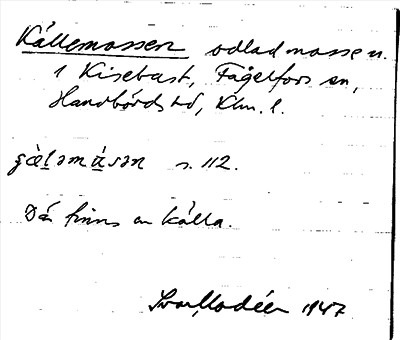 Källemossen odlad mosse n.
i Kisebast, Fågelfors sn,
Handbörds hd, Klm. l.
gä̀l̠əmú̠sən s. 112.
Där finns en källa.
Ivar Modéer 1947